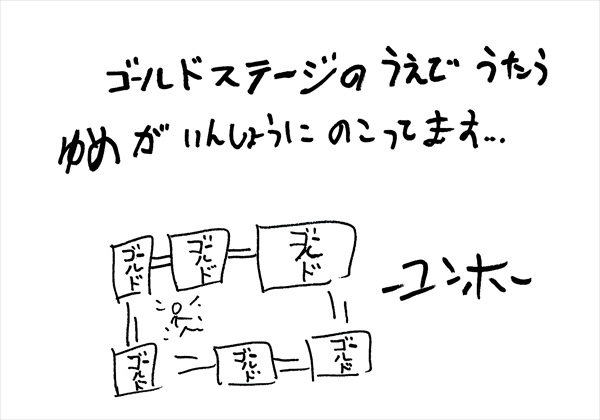 ゴールドステージのうえでうたう
ゆめがいんしょうにのこってます...
ゴールド
ゴールド
ゴールド
-ユンホ-
ゴールド
ゴールド
ゴールド